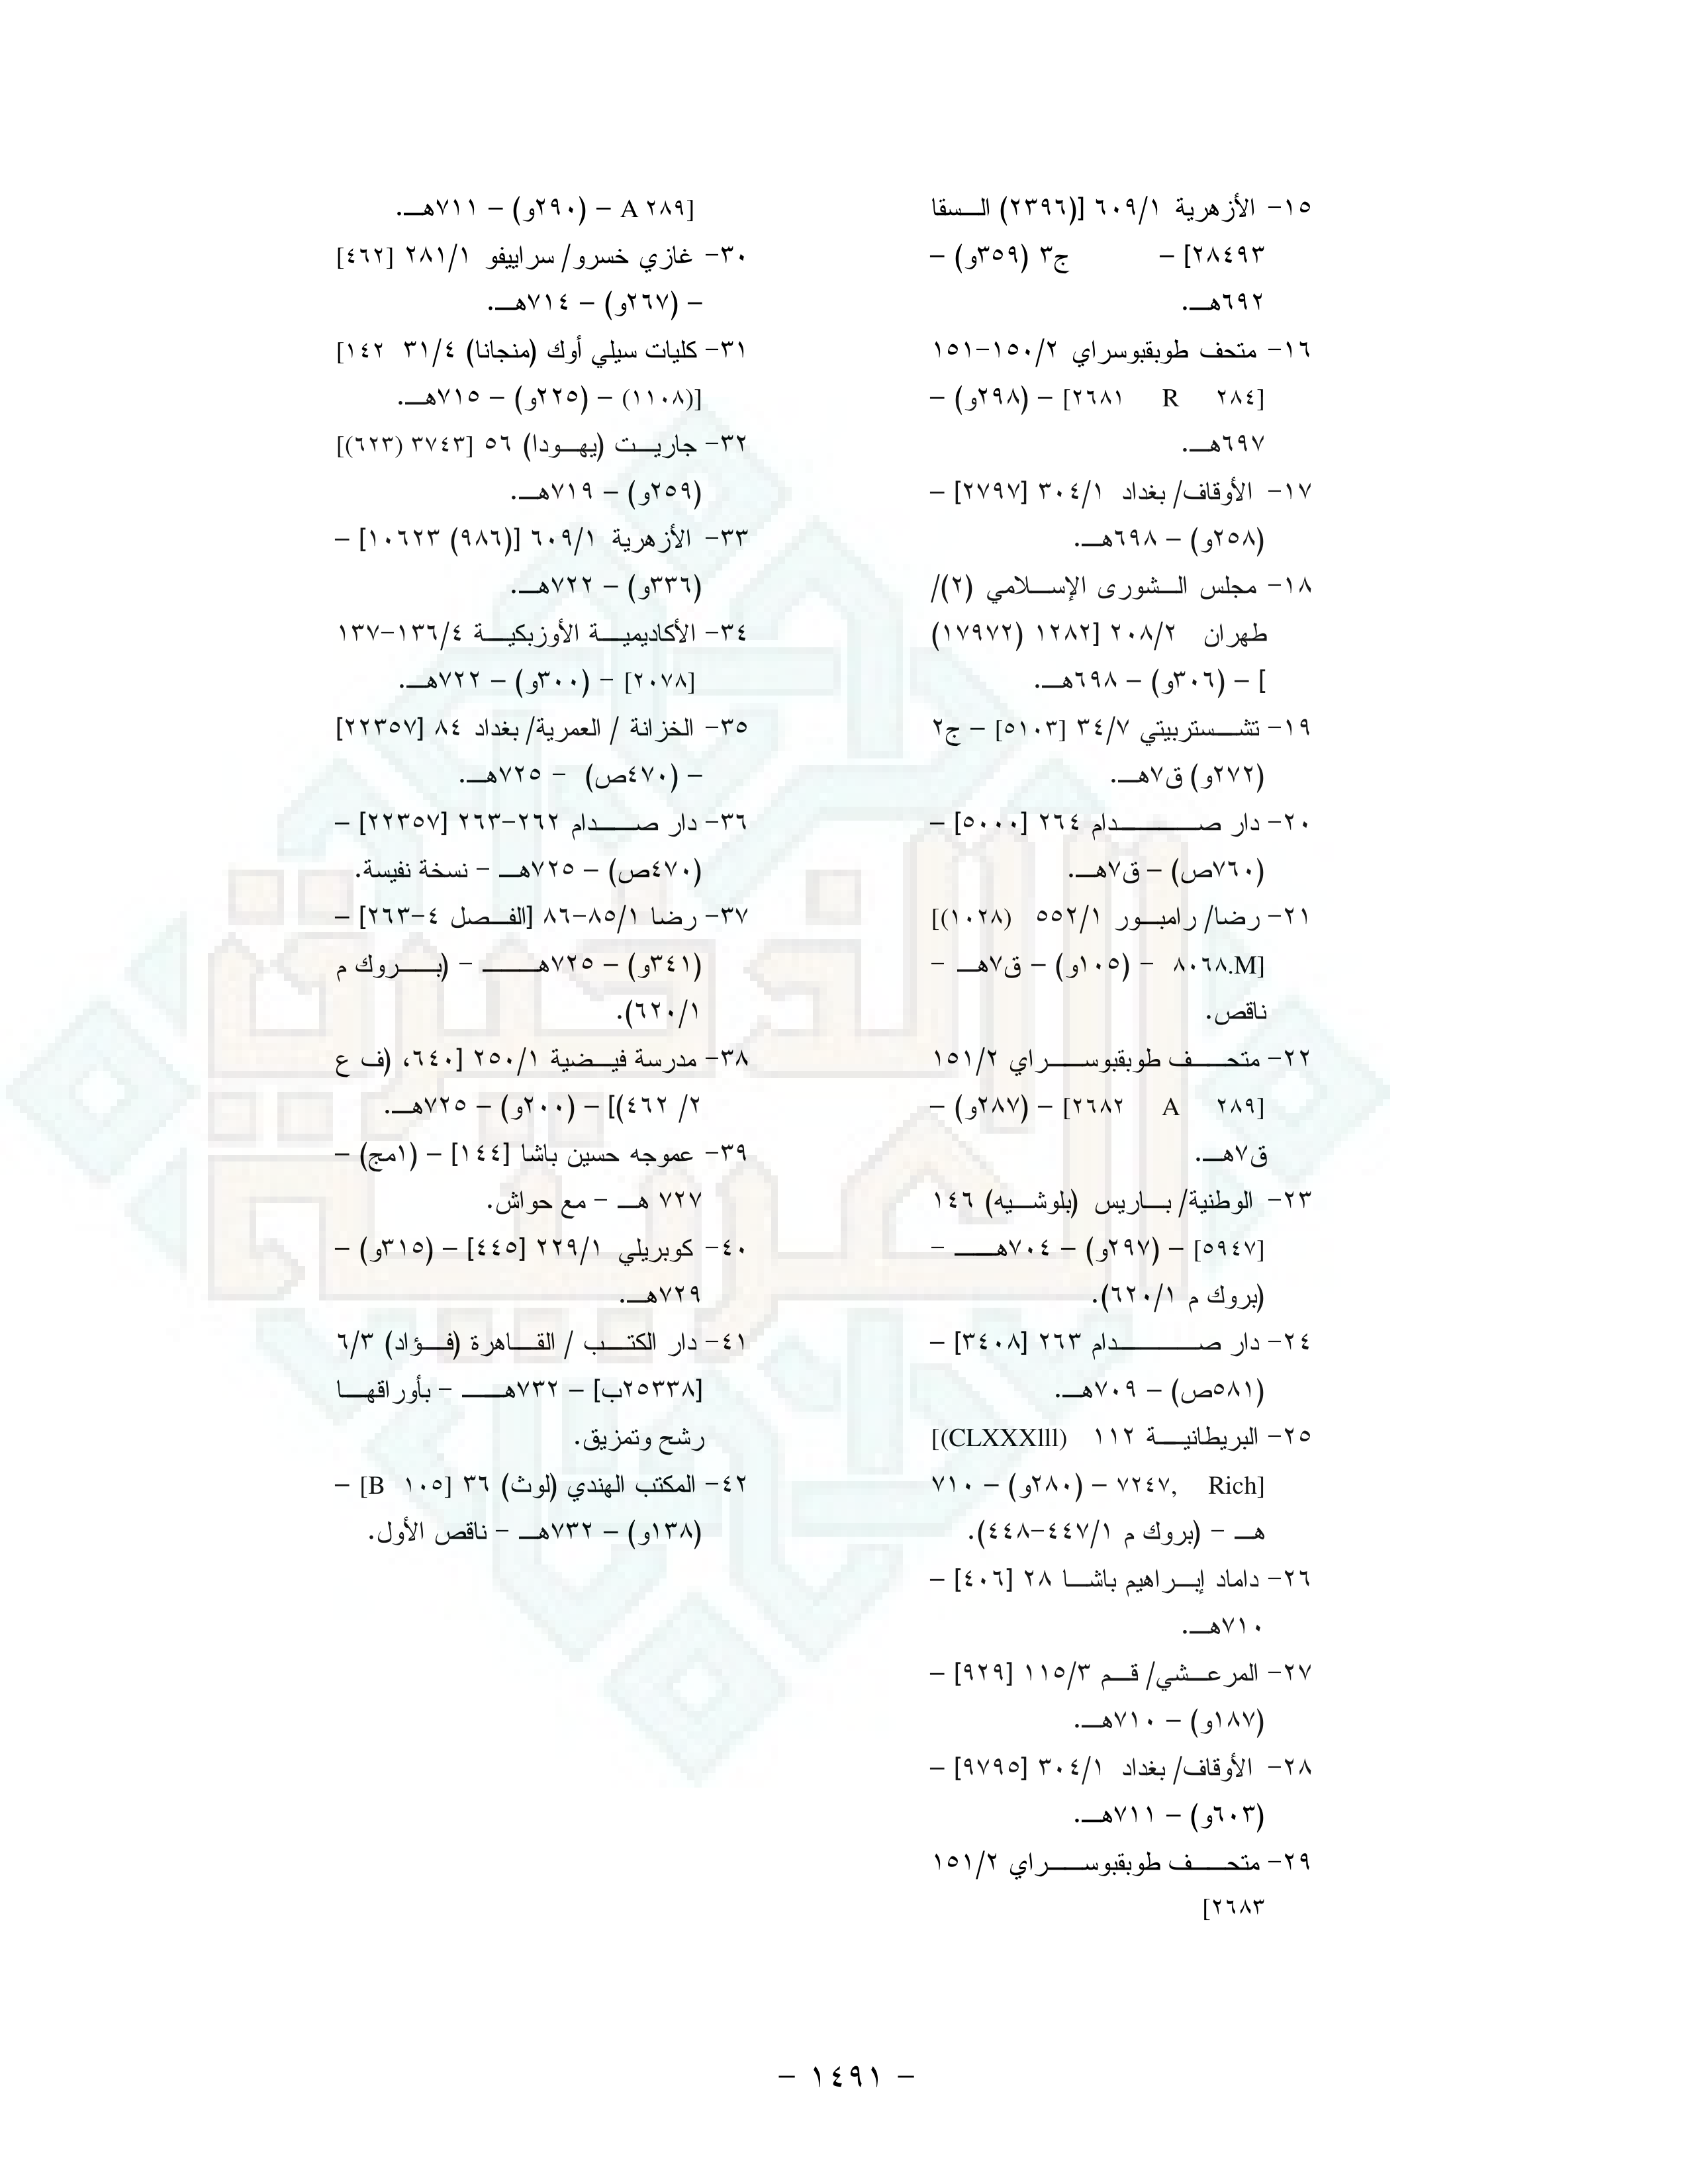 ١٥- الأزهرية ٦٠٩/١ [(٢٣٩٦) السقا
٢٨٤٩٣] - ج٣ (٣٥٩و) -
٦٩٢هـ.
١٦- متحف طوبقبوسراي ١٥٠/٢-١٥١
[٢٦٨١ R ٢٨٤] - (٢٩٨و) -
٦٩٧هـ.
١٧- الأوقاف/ بغداد ٣٠٤/١ [٢٧٩٧] -
(٢٥٨و) - ٦٩٨هـ.
١٨- مجلس الشورى الإسلامي (٢)/
طهران ٢٠٨/٢ [١٢٨٢ (١٧٩٧٢)
] - (٣٠٦و) - ٦٩٨هـ.
١٩- تشستربيتي ٣٤/٧ [٥١٠٣] - ج٢
(٢٧٢و) ق٧هـ.
٢٠- دار صدام ٢٦٤ [٥٠٠٠] -
(٧٦٠ص) - ق٧هـ.
٢١- رضا/ رامبور ٥٥٢/١ [(١٠٢٨)
٨٠٦٨.M] - (١٠٥و) - ق٧هـ -
ناقص.
٢٢- متحف طوبقبوسراي ١٥١/٢
[٢٦٨٢ A ٢٨٩] - (٢٨٧و) -
ق٧هـ.
٢٣- الوطنية/ باريس (بلوشيه) ١٤٦
[٥٩٤٧] - (٢٩٧و) - ٧٠٤هـ -
(بروك م ٦٢٠/١).
٢٤- دار صدام ٢٦٣ [٣٤٠٨] -
(٥٨١ص) - ٧٠٩هـ.
٢٥- البريطانية ١١٢ [(CLXXXlll)
٧٢٤٧, Rich] - (٢٨٠و) - ٧١٠
هـ - (بروك م ٤٤٧/١-٤٤٨).
٢٦- داماد إبراهيم باشا ٢٨ [٤٠٦] -
٧١٠هـ.
٢٧- المرعشي/ قم ١١٥/٣ [٩٢٩] -
(١٨٧و) - ٧١٠هـ.
٢٨- الأوقاف/ بغداد ٣٠٤/١ [٩٧٩٥] -
(٦٠٣و) - ٧١١هـ.
٢٩- متحف طوبقبوسراي ١٥١/٢
[٢٦٨٣
A ٢٨٩] - (٢٩٠و) - ٧١١هـ.
٣٠- غازي خسرو/ سراييفو ٢٨١/١ [٤٦٢]
- (٢٦٧و) - ٧١٤هـ.
٣١- كليات سيلي أوك (منجانا) ٣١/٤ [١٤٢
(١١٠٨)] - (٢٢٥و) - ٧١٥هـ.
٣٢- جاريت (يهودا) ٥٦ [٣٧٤٣ (٦٢٣)]
(٢٥٩و) - ٧١٩هـ.
٣٣- الأزهرية ٦٠٩/١ [(٩٨٦) ١٠٦٢٣] -
(٣٣٦و) - ٧٢٢هـ.
٣٤- الأكاديمية الأوزبكية ١٣٦/٤-١٣٧
[٢٠٧٨] - (٣٠٠و) - ٧٢٢هـ.
٣٥- الخزانة / العمرية/ بغداد ٨٤ [٢٢٣٥٧]
- (٤٧٠ص) - ٧٢٥هـ.
٣٦- دار صدام ٢٦٢-٢٦٣ [٢٢٣٥٧] -
(٤٧٠ص) - ٧٢٥هـ - نسخة نفيسة.
٣٧- رضا ٨٥/١-٨٦ [الفصل ٤-٢٦٣] -
(٣٤١و) - ٧٢٥هـ - (بروك م
٦٢٠/١).
٣٨- مدرسة فيضية ٢٥٠/١ [٦٤٠، (ف ع
٢/ ٤٦٢)] - (٢٠٠و) - ٧٢٥هـ.
٣٩- عموجه حسين باشا [١٤٤] - (١مج) -
٧٢٧ هـ - مع حواش.
٤٠- كوبريلي ٢٢٩/١ [٤٤٥] - (٣١٥و) -
٧٢٩هـ.
٤١- دار الكتب / القاهرة (فؤاد) ٦/٣
[٢٥٣٣٨ب] - ٧٣٢هـ - بأوراقها
رشح وتمزيق.
٤٢- المكتب الهندي (لوث) ٣٦ [B ١٠٥] -
(١٣٨و) - ٧٣٢هـ - ناقص الأول.
- ١٤٩١ -
الذخيرة
العربية